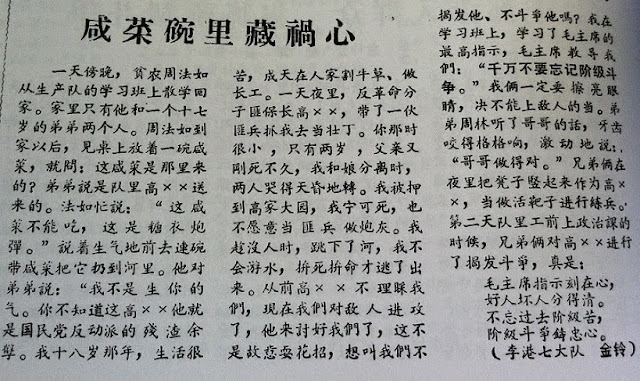 咸菜碗里藏禍心
一天傍晚，贫农周法如
从生产队的学习班上散学回
家。家里只有他和一个十七
岁的弟弟两个人。周法如到
家以后，见桌上放着一碗咸
菜，就問：这咸菜是那里来
的？弟弟説是队里高××送
来的。法如忙説：“这咸
菜不能吃，这是糖衣炮
弹。”説着生气地前去連碗
带咸菜把它扔到河里。他对
弟弟説：“我不是生你的
气。你不知道这高××他就
是囯民党反动派的残渣余
孽。我十八岁那年，生活很
苦，成天在人家割牛草、做
长工。一天夜里，反革命分
子匪保长高××，带了一伙
匪兵抓我去当壮丁。你那时
很小，只有两岁，父亲又
刚死不久，我和娘分离时，
两人哭得天昏地轉。我被押
到高家大园，我宁可死，也
不愿意当匪兵做炮灰。我
趁沒人时，跳下了河，我不
会游水，拚死拚命才逃了出
来。从前高××不理睬我
們，现在我們对敌人进攻
了，他来討好我們了，这不
是故意耍花招，想叫我們不
揭发他、不斗爭他嗎？我在
学习班上，学习了毛主席的
最高指示，毛主席教导我
們：“千万不要忘记阶级斗
争。”我俩一定要擦亮眼
睛，决不能上敌人的当。弟
弟周林听了哥哥的話，牙齿
咬得格格响，激动地説：
“哥哥做得对。”兄弟俩在
夜里把凳子豎起来作为高×
×，当做活靶子进行練兵。
第二天队里工前上政治課的
时候，兄弟俩对高××进行
了揭发斗爭，真是：
毛主席指示刻在心，
好人坏人分得清。
不忘过去阶级苦，
阶级斗爭鋳忠心。
（李港七大队 金铃）